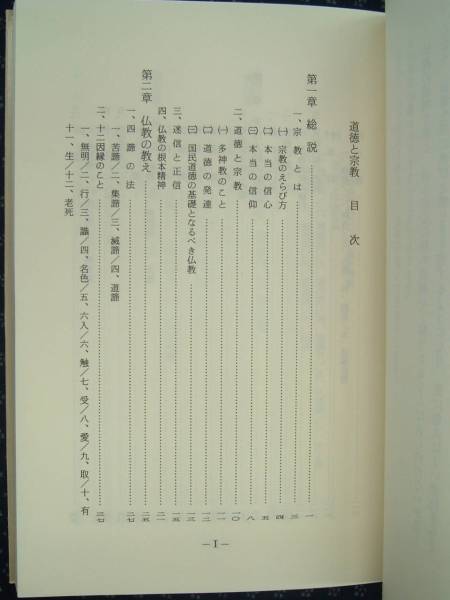 道徳と宗教　目次
第一章　総説……一
一、宗教とは……三
㈠　宗教のえらび方……四
㈡　本当の信心……五
㈢　本当の信仰……八
二、道徳と宗教……一〇
㈠　多神教のこと……一一
㈡　道徳の発達……一二
㈢　国民道徳の基礎となるべき仏教……一三
三、迷信と正信……一五
四、仏教の根本精神……二一
第二章　仏教の教え……二五
一、四諦の法……二七
一、苦諦／二、集諦／三、滅諦／四、道諦
二、十二因縁のこと……三七
一、無明／二、行／三、識／四、名色／五、六入／六、触／七、受／八、愛／九、取／十、有
十一、生／十二、老死
―Ⅰ―